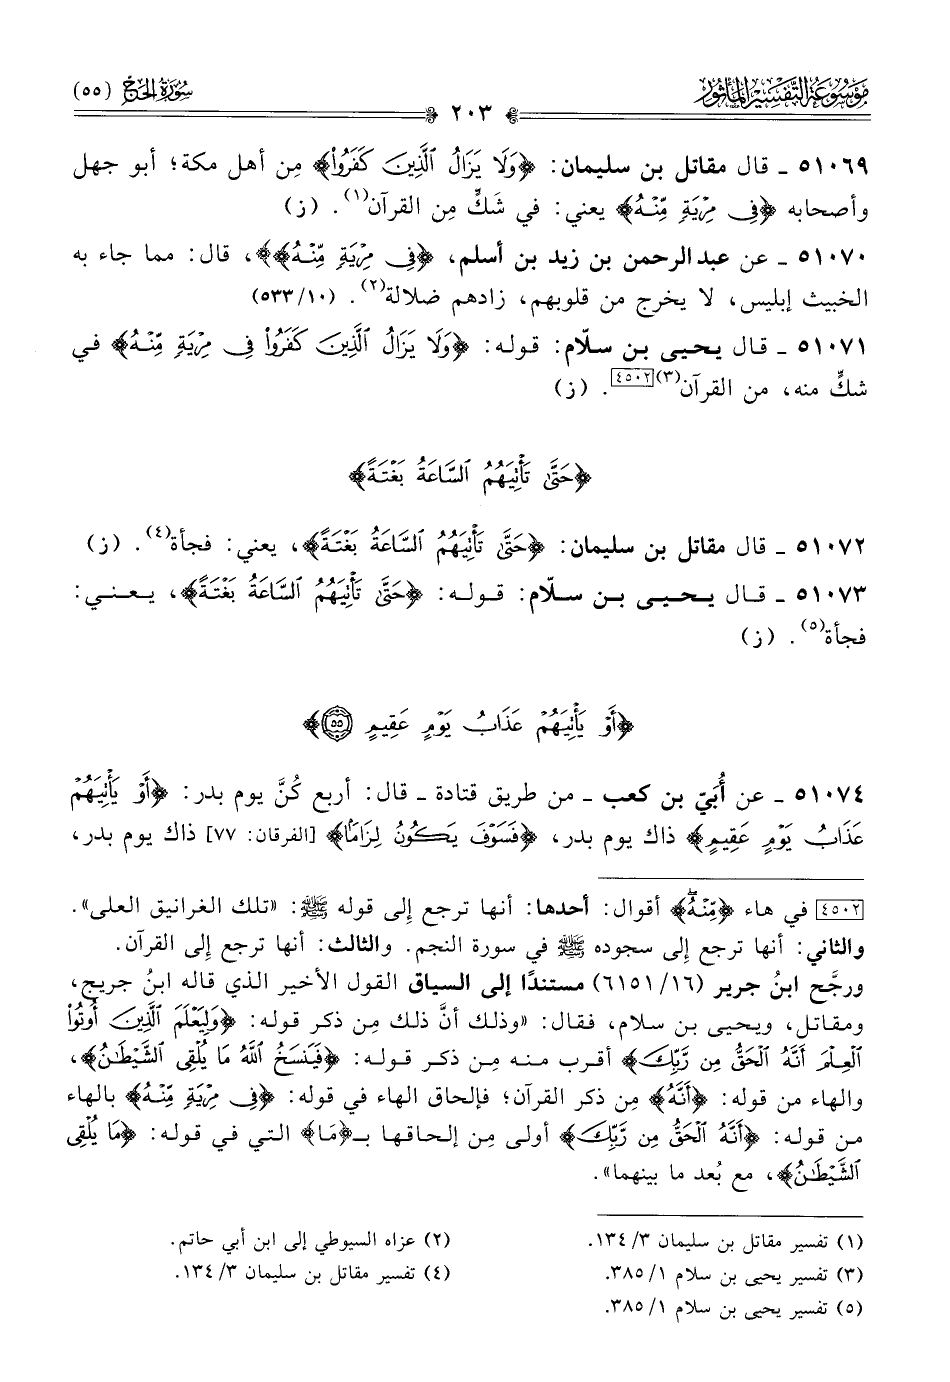 مَوْسُوعَة التَّفْسِيْر المَأْثُور
سُورَةُ الحَجّ (٥٥)
٢٠٣
٥١٠٦٩ ـ قال مقاتل بن سليمان: ﴿وَلَا يَزَالُ ٱلَّذِينَ كَفَرُوا۟﴾ مِن أهل مكة؛ أبو جهل
وأصحابه ﴿فِى مِرْيَةٍ مِّنْهُ﴾ يعني: في شَكٍّ مِن القرآن(١). (ز)
٥١٠٧٠ ـ عن عبد الرحمن بن زيد بن أسلم، ﴿فِى مِرْيَةٍ مِّنْهُ﴾﴾، قال: مما جاء به
الخبيث إبليس، لا يخرج من قلوبهم، زادهم ضلالة(٢). (٥٣٣/١٠)
٥١٠٧١ ـ قال يحيى بن سلّام: قوله: ﴿وَلَا يَزَالُ ٱلَّذِينَ كَفَرُوا۟ فِى مِرْيَةٍ مِّنْهُ﴾ في
شكٍّ منه، من القرآن(٣)[٤٥٠٢]. (ز)
﴿حَتَّىٰ تَأْتِيَهُمُ ٱلسَّاعَةُ بَغْتَةً﴾
٥١٠٧٢ ـ قال مقاتل بن سليمان: ﴿حَتَّىٰ تَأْتِيَهُمُ ٱلسَّاعَةُ بَغْتَةً﴾، يعني: فجأة(٤). (ز)
٥١٠٧٣ ـ قال يحيى بن سلّام: قوله: ﴿حَتَّىٰ تَأْتِيَهُمُ ٱلسَّاعَةُ بَغْتَةً﴾، يعني:
فجأة(٥). (ز)
﴿أَوْ يَأْتِيَهُمْ عَذَابُ يَوْمٍ عَقِيمٍ ٥٥﴾
٥١٠٧٤ ـ عن أُبَيّ بن كعب ـ من طريق قتادة ـ قال: أربع كُنَّ يوم بدر: ﴿أَوْ يَأْتِيَهُمْ
عَذَابُ يَوْمٍ عَقِيمٍ﴾ ذاك يوم بدر، ﴿فَسَوْفَ يَكُونُ لِزَامًۢا﴾ [الفرقان: ٧٧] ذاك يوم بدر،
[٤٥٠٢] في هاء ﴿مِّنْهُ﴾ أقوال: أحدها: أنها ترجع إلى قوله ﷺ: «تلك الغرانيق العلى».
والثاني: أنها ترجع إلى سجوده ﷺ في سورة النجم. والثالث: أنها ترجع إلى القرآن.
ورجَّح ابنُ جرير (٦١٥١/١٦) مستندًا إلى السياق القول الأخير الذي قاله ابنُ جريج،
ومقاتل، ويحيى بن سلام، فقال: «وذلك أنَّ ذلك مِن ذكر قوله: ﴿وَلِيَعْلَمَ ٱلَّذِينَ أُوتُوا۟
ٱلْعِلْمَ أَنَّهُ ٱلْحَقُّ مِن رَّبِّكَ﴾ أقرب منه مِن ذكر قوله: ﴿فَيَنسَخُ ٱللَّهُ مَا يُلْقِى ٱلشَّيْطَٰنُ﴾،
والهاء من قوله: ﴿أَنَّهُ﴾ مِن ذكر القرآن؛ فإلحاق الهاء في قوله: ﴿فِى مِرْيَةٍ مِّنْهُ﴾ بالهاء
من قوله: ﴿أَنَّهُ ٱلْحَقُّ مِن رَّبِّكَ﴾ أولى مِن إلحاقها بـ﴿مَا﴾ التي في قوله: ﴿مَا يُلْقِى
ٱلشَّيْطَٰنُ﴾، مع بُعد ما بينهما».
(١) تفسير مقاتل بن سليمان ٣/ ١٣٤.
(٢) عزاه السيوطي إلى ابن أبي حاتم.
(٣) تفسير يحيى بن سلام ١/ ٣٨٥.
(٤) تفسير مقاتل بن سليمان ٣/ ١٣٤.
(٥) تفسير يحيى بن سلام ١/ ٣٨٥.